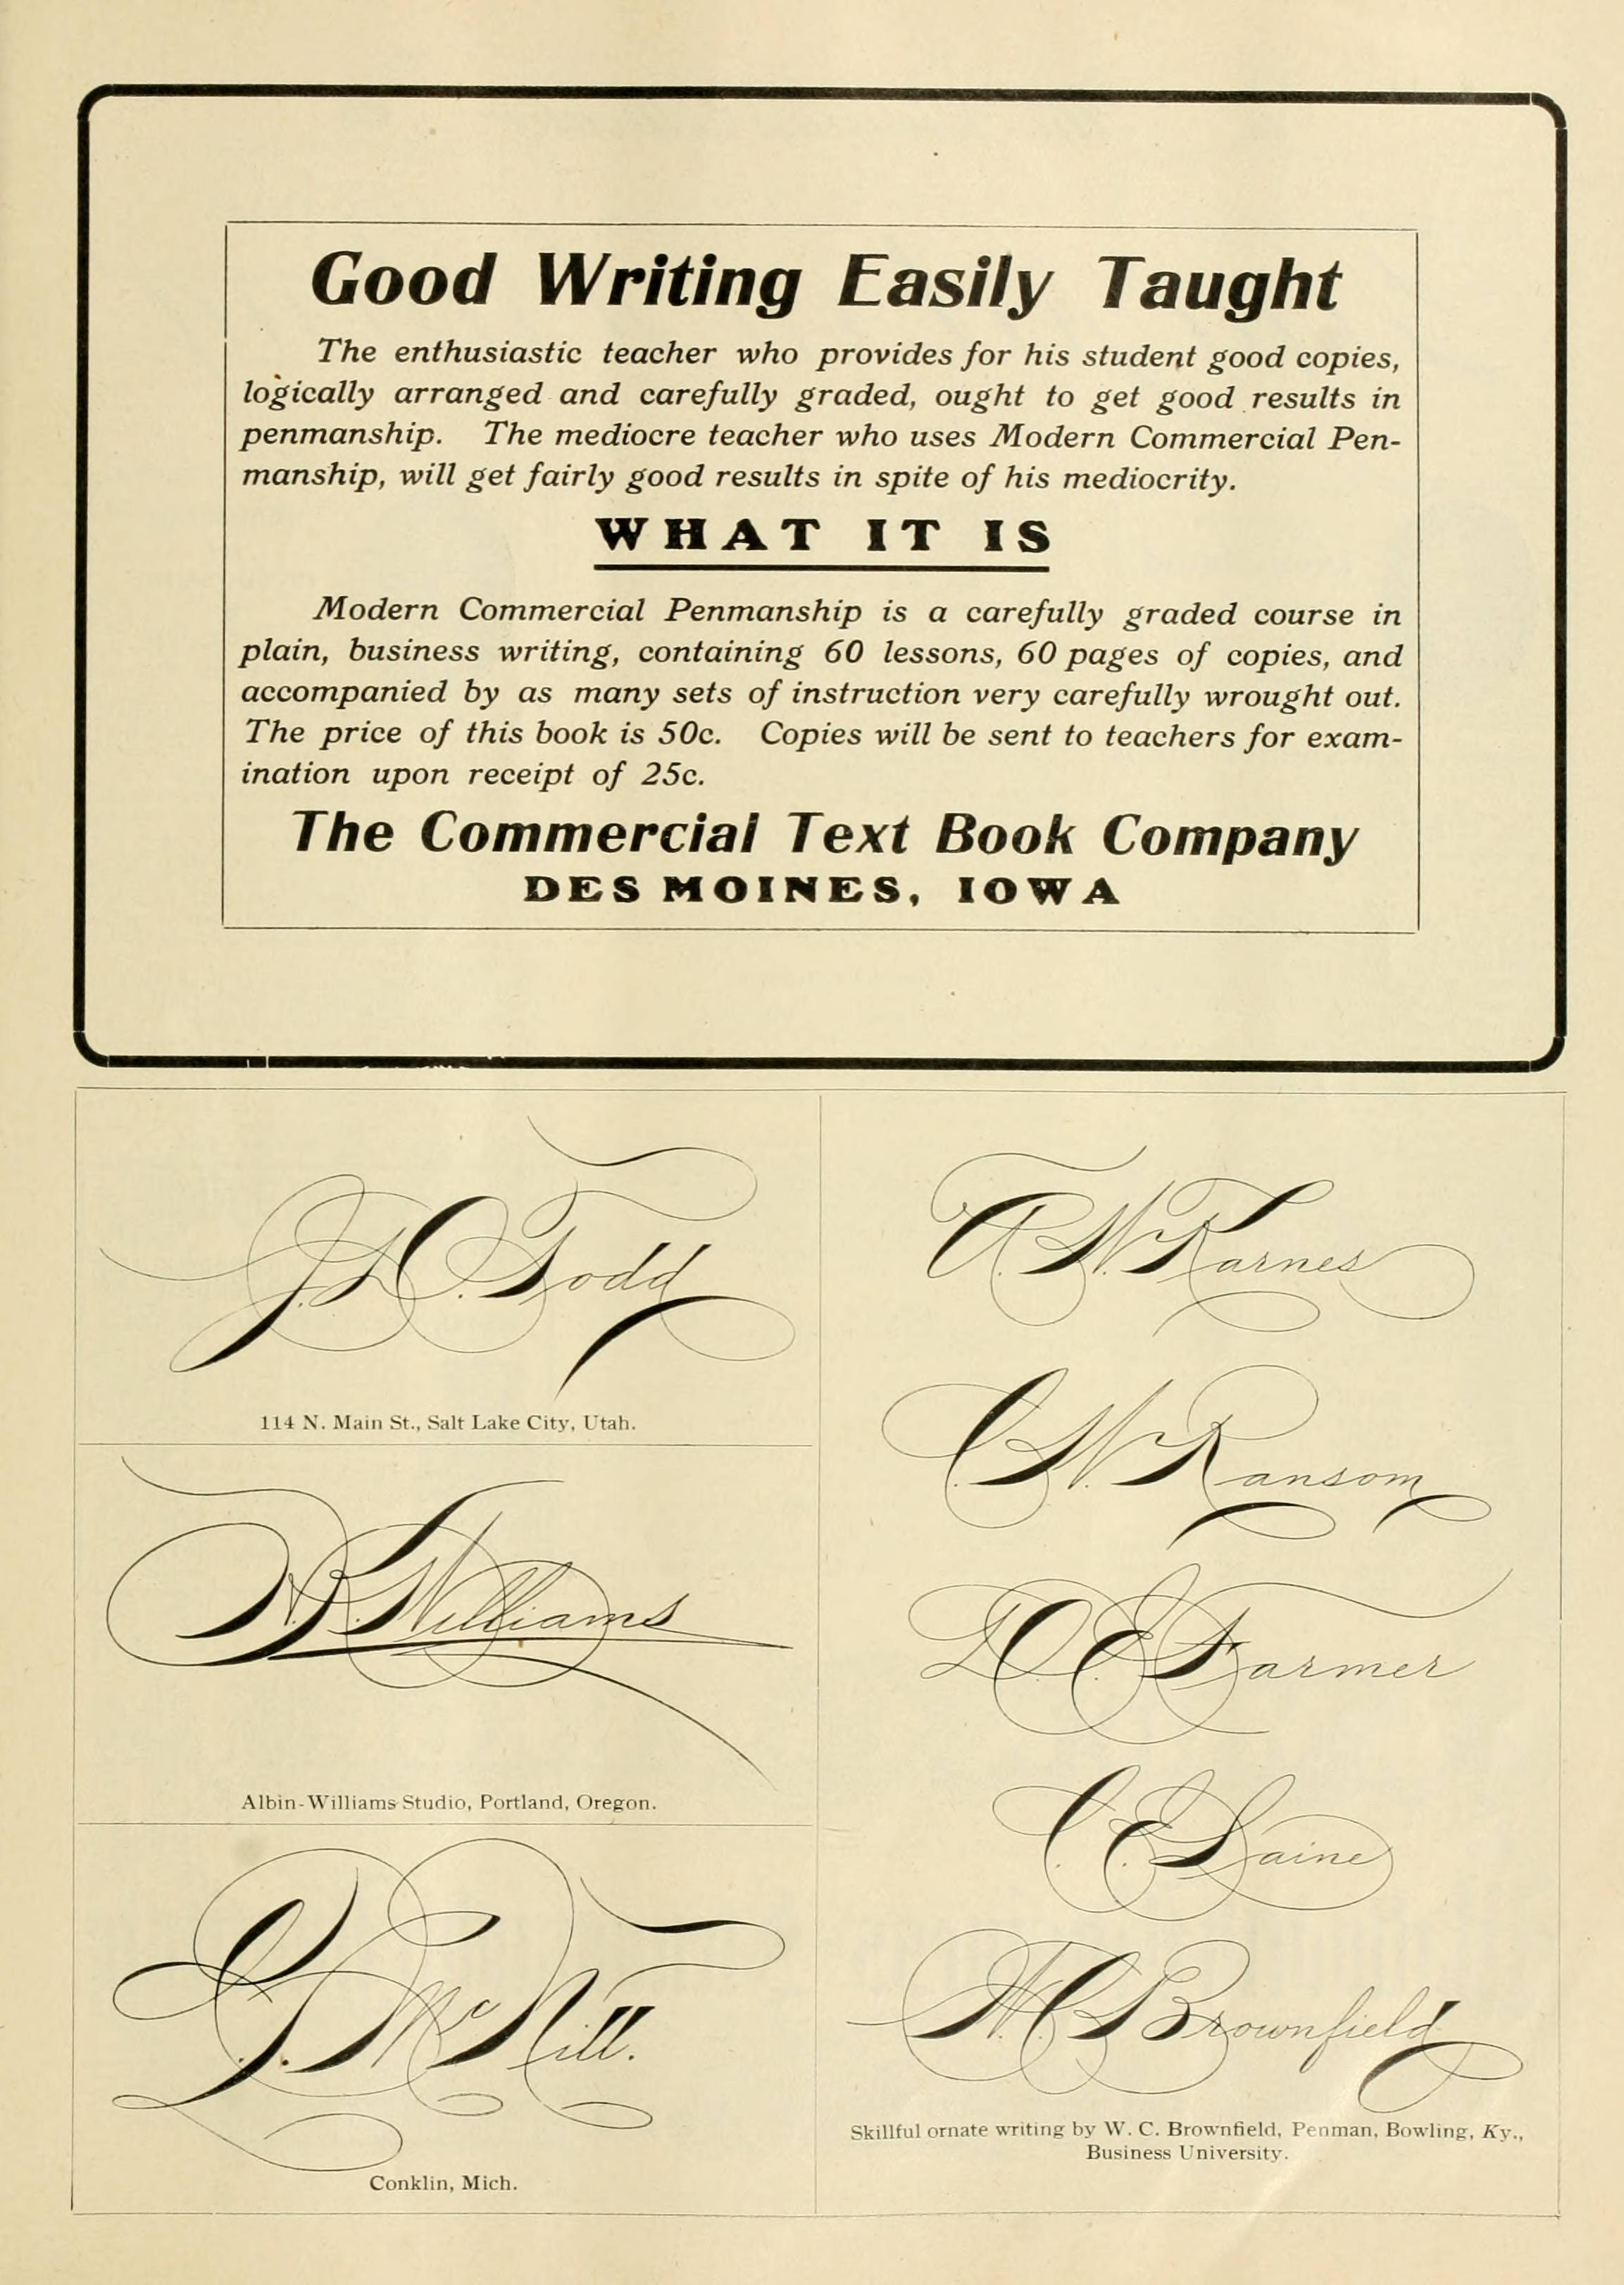 Good Writing Easily Taught
The enthusiastic teacher who provides for his student good copies,
logically arranged and carefully graded, ought to get good results in
penmanship. The mediocre teacher who uses Modern Commercial Pen-
manship, will get fairly good results in spite of his mediocrity.
WHAT IT IS
Modern Commercial Penmanship is a carefully graded course in
plain, business writing, containing 60 lessons, 60 pages of copies, and
accompanied by as many sets of instruction very carefully wrought out.
The price of this book is 50c. Copies will be sent to teachers for exam-
ination upon receipt of 25c.
The Commercial Text Book Company
DES MOINES, IOWA
Todd
114 N. Main St., Salt Lake City, Utah.
Williams
Albin-Williams Studio, Portland, Oregon.
McNill.
Conklin, Mich.
Karnes
C. W. Ransom
D. C. Farmer
C. C. Laine
W. C. Brownfield
Skillful ornate writing by W. C. Brownfield, Penman, Bowling, Ky.,
Business University.